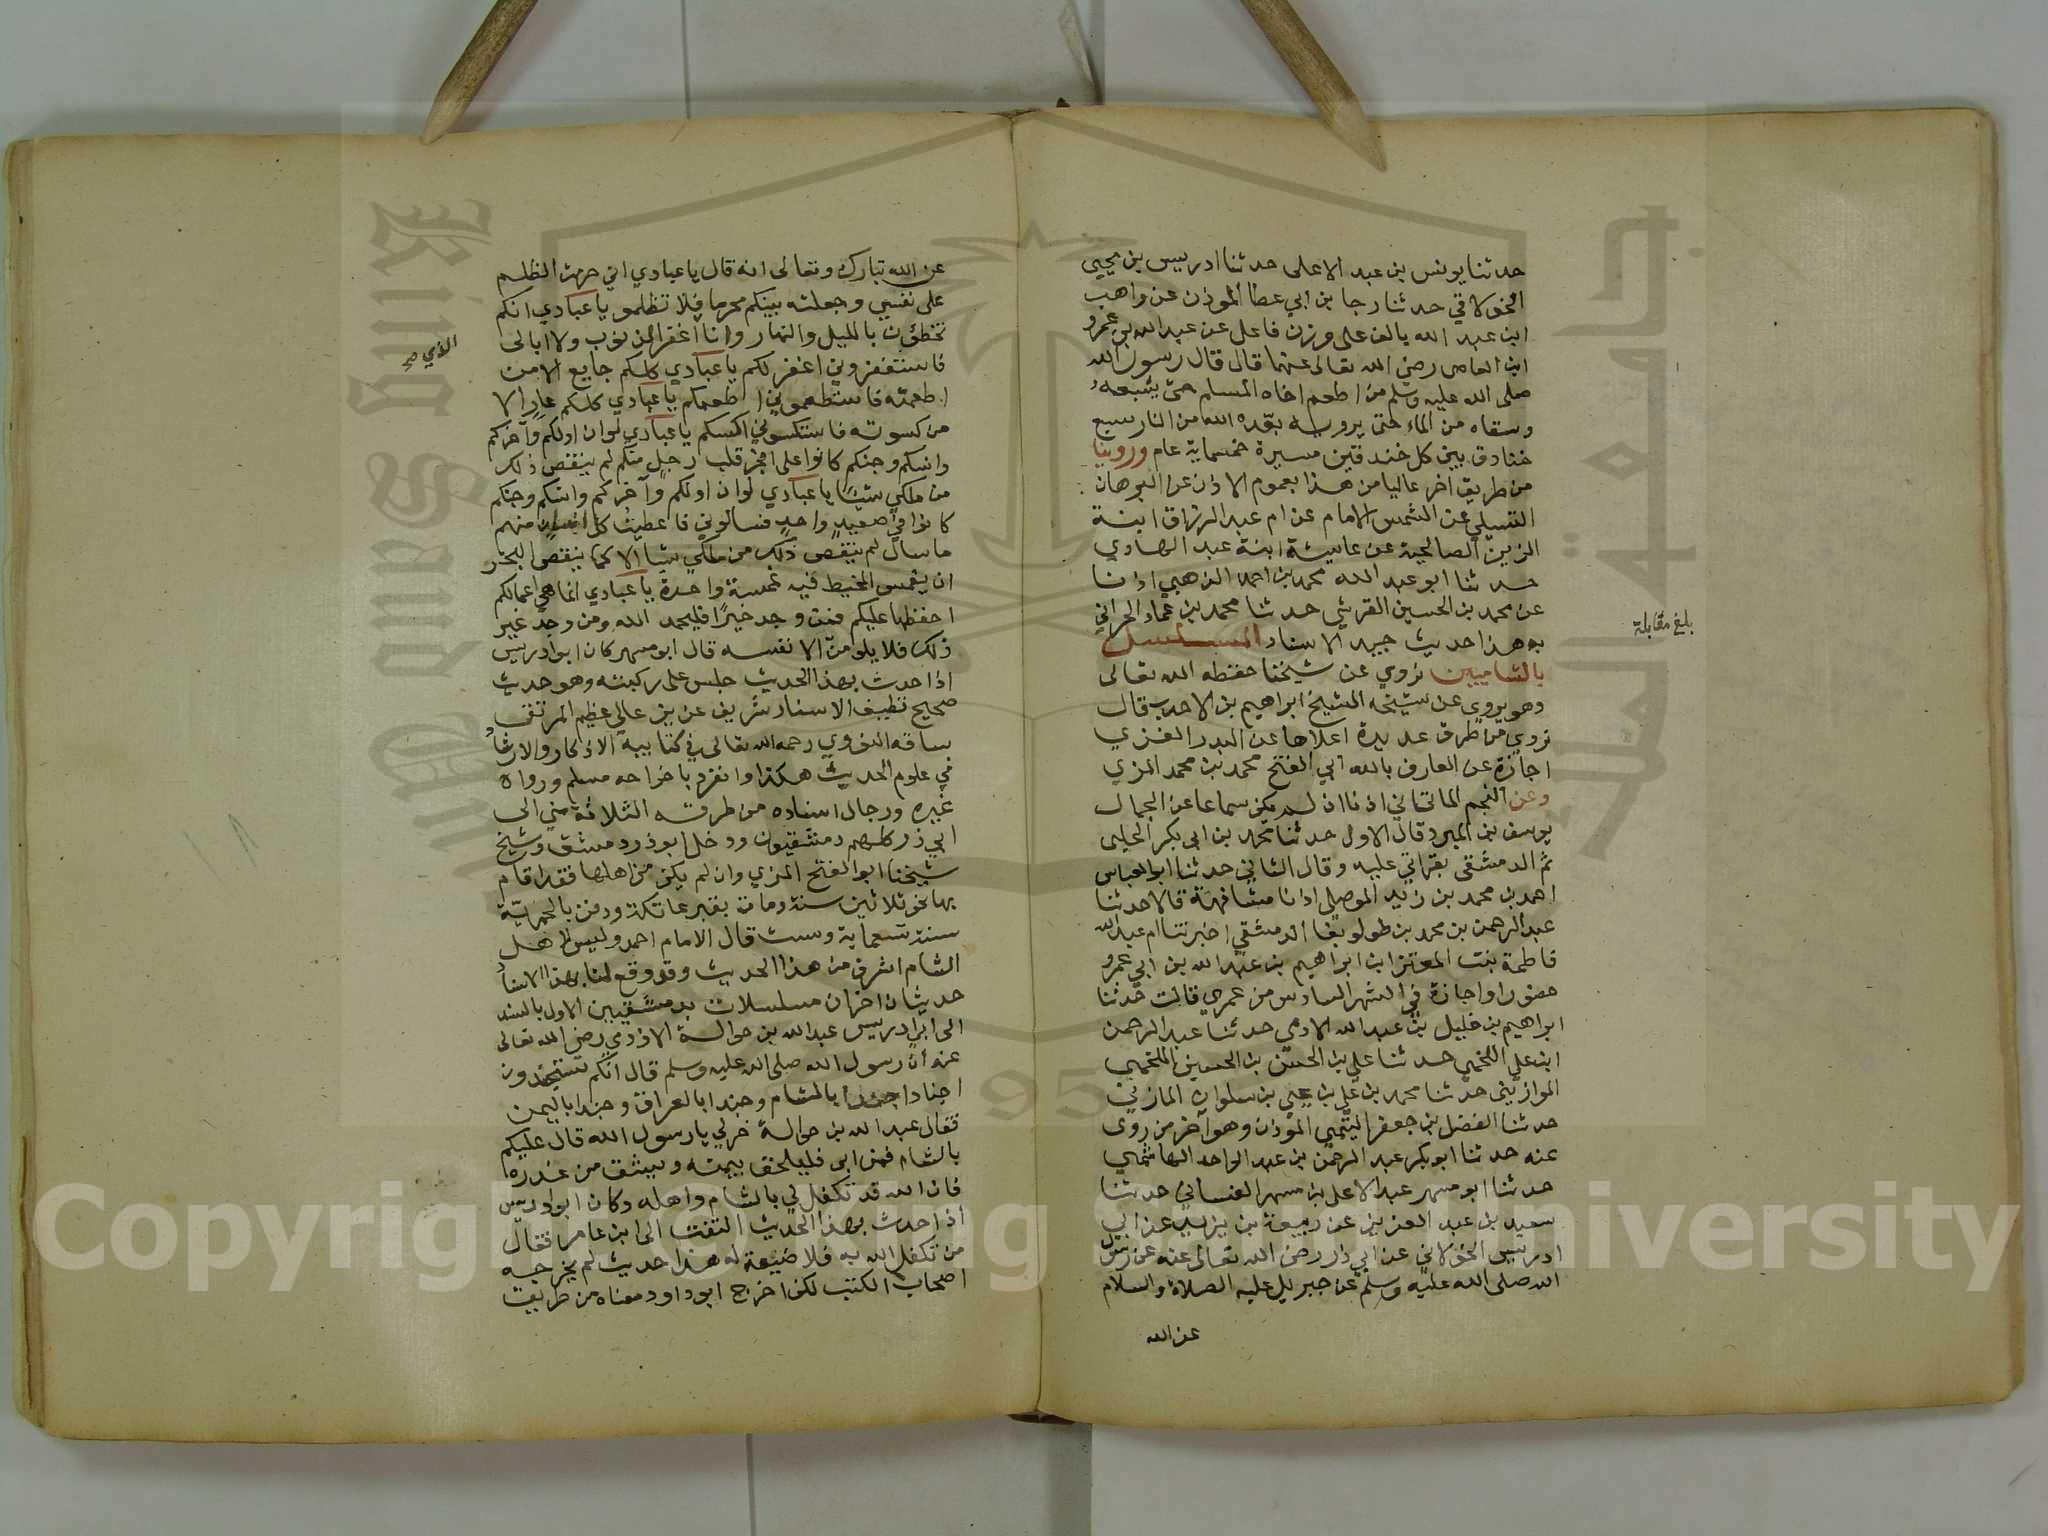 حدثنا يونس بن عبد الاعلى حدثنا ادريس بن يحيى
الخولاني حدثنا رجا بن ابي عطا الموذن عن واهب
ابن عبد الله بالف على وزن فاعل عن عبد الله بن عمرو
ابن العاص رضي الله تعالى عنهما قال قال رسول الله
صلى الله عليه وسلم من اطعم اخاه المسلم حتى يشبعه
وسقاه من الماء حتى يرويه بعده الله من النار سبع
خنادق بين كل خندقين مسيرة خمسماية عام وروينا
من طريق اخر عاليا من هذا بعموم الاذن عن البرهان
عن الشمس الامام عن ام عبد الرزاق ابنة
الزين الصالحية عن عايشة ابنة عبد الهادي
حدثنا ابو عبد الله محمد بن احمد الذهبي اذنا
عن محمد بن الحسين القرشي حدثنا محمد بن عماد الحراني
به هذا حديث جيد الاسناد المسلسل
بالشاميين نروي عن شيخنا حفظه الله تعالى
وهو يروي عن شيخه الشيخ ابراهيم بن الاحدب قال
نروي من طرق عديدة اعلاها عن البدر الغزي
اجازة عن العارف بالله ابي الفتح محمد بن محمد المزي
وعن النجم الماتاني اذنا ان لم يكن سماعا عن الجمال
يوسف بن المبرد قال الاول حدثنا محمد بن ابي بكر الحلبي
ثم الدمشقي بقراتي عليه وقال الثاني حدثنا ابو العباس
احمد بن محمد بن زيد الموصلي اذنا مشافهة قالا حدثنا
عبد الرحمن بن محمد بن طولوبغا الدمشقي اخبرتنا ام عبد الله
فاطمة بنت المعتز ابن ابراهيم بن عبد الله بن ابي عمرو
حضورا واجازة في الشهر السادس من عمري قالت حدثنا
ابراهيم بن خليل بن عبد الله الادمي حدثنا عبد الرحمن
ابن علي اللخمي حدثنا علي بن الحسن بن الحسين
الموازيني حدثنا محمد بن علي بن يحيى بن سلوان المازني
حدثنا الفضل بن جعفر التميمي الموذن وهو آخر من روى
عنه حدثنا ابو بكر عبد الرحمن بن عبد الواحد الهاشمي
حدثنا ابو مسهر عبد الاعلى بن مسهر الغساني حدثنا
سعيد بن عبد العزيز عن ربيعة بن يزيد عن ابي
ادريس الخولاني عن ابي ذر رضي الله تعالى عنه عن رسول
الله صلى الله عليه وسلم عن جبريل عليه الصلاة والسلام
عن الله
بلغ مقابلة
عن الله تبارك وتعالى انه قال يا عبادي اني حرمت الظلم
على نفسي وجعلته بينكم محرما فلا تظلموا يا عبادي انكم
تخطئون بالليل والنهار وانا اغفر الذنوب ولا ابالي
فاستغفروني اغفر لكم يا عبادي كلكم جايع الا من
اطعمته فاستطعموني اطعمكم يا عبادي كلكم عار الا
من كسوته فاستكسوني اكسكم يا عبادي لو ان اولكم وآخركم
وانسكم وجنكم كانوا على افجر قلب رجل منكم لم ينقص ذلك
من ملكي شيئا يا عبادي لو ان اولكم وآخركم وانسكم وجنكم
كانوا في صعيد واحد فسالوني فاعطيت كل انسان منهم
ما سال لم ينقص ذلك من ملكي شيا الا كما ينقص البحر
ان يغمس المخيط فيه غمسة واحدة يا عبادي انما هي اعمالكم
احفظها عليكم فمن وجد خيرا فليحمد الله ومن وجد غير
ذلك فلا يلومن الا نفسه قال ابو مسهر كان ابو ادريس
اذا حدث بهذا الحديث جلس على ركبته وهو حديث
صحيح نظيف الاسناد شريف عزيز عالي عظيم المرتقى
ساقه النووي رحمه الله تعالى في كتابيه الاذكار والارشاد
في علوم الحديث هكذا وانفرد باخراجه مسلم ورواه
غيره ورجال اسناده من طرقه الثلاثة مني الى
ابي ذر كلهم دمشقيون ودخل ابو ذر دمشق وشيخ
شيخنا ابو الفتح المزي وان لم يكن من اهلها فقد اقام
بها نحو ثلاثين سنة ومات بقبر عاتكة ودفن بالحمرية
سنة تسعماية وست قال الامام احمد وليس لاهل
الشام اشرف من هذا الحديث وقد وقع لنا بهذا الاسناد
حديثان اخران مسلسلات بدمشقيين الاول بالسند
الى ابي ادريس عبد الله بن حوالة الازدي رضي الله تعالى
عنه ان رسول الله صلى الله عليه وسلم قال انكم ستجندون
اجنادا جندا بالشام وجندا بالعراق وجندا باليمن
فقال عبد الله بن حوالة خر لي يا رسول الله قال عليكم
بالشام فمن ابى فليلحق بيمنه وليستق من غدره
فان الله قد تكفل لي بالشام واهله وكان ابو ادريس
اذا حدث بهذا الحديث التفت الى ابن عامر فقال
من تكفل الله به فلا ضيعة له هذا حديث لم يخرجه
اصحاب الكتب لكن اخرج ابو داود معناه من طريق
الذي صح
Copyright © King Saud University